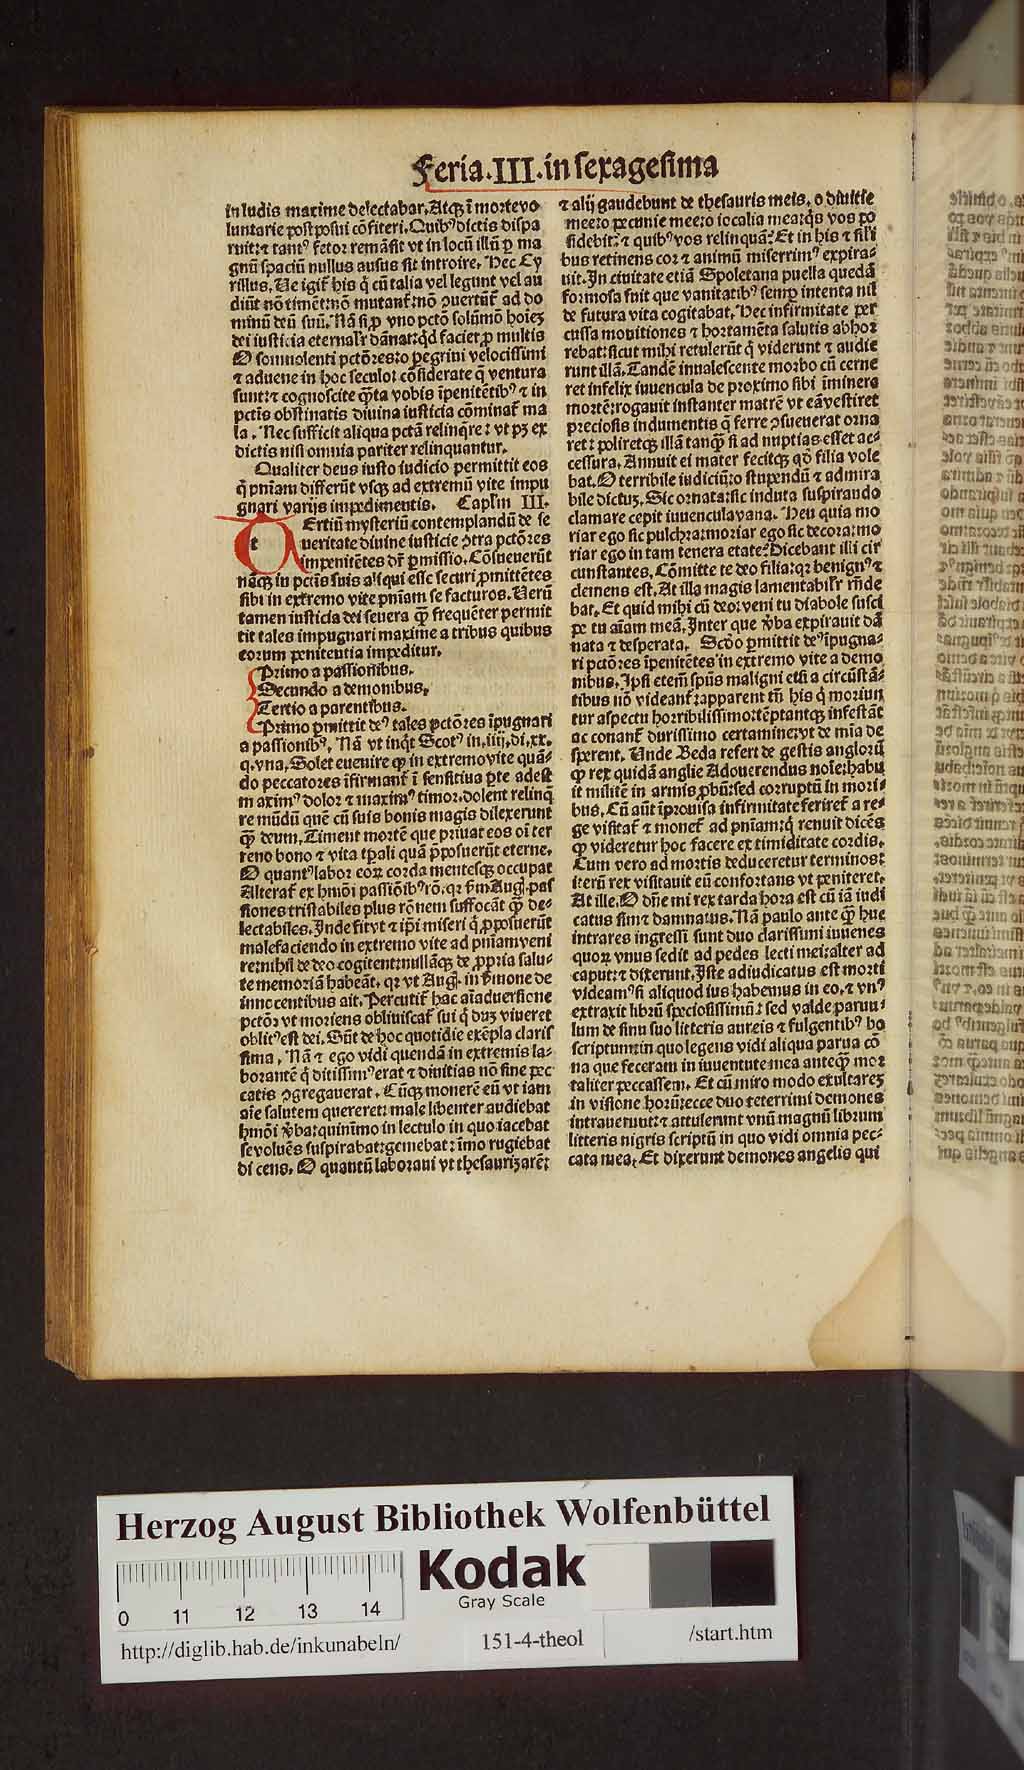 Feria.III.in sexagesima
in ludis maxime delectabar. Atq̃ ĩ morte vo
luntarie postposui cõfiteri. Quibꝰ dictis dispa
ruit: ⁊ tantꝰ fetor remãsit vt in locũ illũ ꝑ ma
gnũ spaciũ nullus ausus sit introire. Hec Cy
rillus. Ve igit̃ his q̃ cũ talia vel legunt vel au
diũt nõ timẽt: nõ mutant̃: nõ ꝯuertũt̃ ad do
minũ deũ suũ. Nã si ꝓ vno pctõ solũmõ hoiez
dei iusticia eternal'r dãnat: qd faciet ꝓ multis
O somnolenti pctõres: o peregrini velocissimi
⁊ aduene in hoc seculo: cõsiderate q̃ ventura
sunt: ⁊ cognoscite q̃ta vobis ĩpenitẽtibꝰ ⁊ in
pctis obstinatis diuina iusticia cõminat̃ ma
la. Nec sufficit aliqua pctã relinq̃re: vt pꝫ ex
dictis nisi omnia pariter relinquantur.
Qualiter deus iusto iudicio permittit eos
q̃ pniam differũt vsq̃ ad extremũ vite impu
gnari varijs impedimentis. Caplm III.
Ertiũ mysteriũ contemplandũ de se
t
ueritate diuine iusticie ꝯtra pctõres
impenitẽtes dr̃ ꝑmissio. Cõsueuerũt
nãq̃ in pctis suis aliqui esse securi ꝓmittẽtes
sibi in extremo vite pniam se facturos. Verũ
tamen iusticia dei seuera q̃ frequẽter permit
tit tales impugnari maxime a tribus quibus
eorum penitentia impeditur.
Primo a passionibus.
Secundo a demonibus.
Tertio a parentibus.
Primo ꝑmittit deꝰ tales pctõres ĩpugnari
a passionibꝰ. Nã vt inq̃t Scotꝰ in.iiij.di.xx.
q.vna. Solet euenire ꝙ in extremo vite quã-
do peccatores ĩfirmant̃ ĩ sensitiua ꝑte adest
maximꝰ dolor ⁊ maximꝰ timor. dolent relinq̃
re mũdũ quẽ cũ suis bonis magis dilexerunt
q̃ deum. Timent mortẽ que priuat eos oĩ ter
reno bono ⁊ vita tpali quã p̃posuerũt eterne.
O quantꝰ labor eoꝝ corda mentesq̃ occupat
Alterat̃ ex hmõi passiõibꝰ rõ. qꝛ ẽm Aug̃. pas
siones tristabiles plus rõnem suffocãt q̃ de-
lectabiles. Inde fit vt ⁊ ipi miseri q̃ ꝓposuerũt
malefaciendo in extremo vite ad pniam veni
re: nihil de deo cogitent: nullãq̃ de ꝓpria salu-
te memoriã habeãt. qꝛ vt Aug̃. in sermone de
innocentibus ait. Percutit̃ hac aĩaduersione
pctõꝛ vt moriens obliuiscat̃ sui q̃ duꝫ viueret
oblitꝰ est dei. Sũt de hoc quotidie exẽpla claris
sima. Nã ⁊ ego vidi quendã in extremis la-
borantẽ q̃ ditissimꝰ erat ⁊ diuitias nõ sine pec
catis ꝯgregauerat. Cũq̃ monerẽ eũ vt iam
aĩe salutem quereret: male libenter audiebat
hmõi ꝟba: quinimo in lectulo in quo iacebat
se voluẽs suspirabat: gemebat: ĩmo rugiebat
dicens. O quantũ laboraui vt thesaurizarẽ:
⁊ alij gaudebunt de thesauris meis. o diuitie
mee: o pecunie mee: o iocalia mea: q̃s vos pos
sidebit: ⁊ quibꝰ vos relinquã? Et in his ⁊ sili
bus retinens cor ⁊ animũ miserrimꝰ expira-
uit. In ciuitate etiã Spoletana puella quedã
formosa fuit que vanitatibꝰ semꝑ intenta nil
de futura vita cogitabat. Hec infirmitate per
cussa monitiones ⁊ hortamẽta salutis abhor
rebat: sicut mihi retulerũt q̃ viderunt ⁊ audie
runt illã. Tandẽ inualescente morbo cũ cerne
ret infelix iuuencula de proximo sibi ĩminere
mortẽ: rogauit instanter matrẽ vt eã vestiret
preciosis indumentis q̃ ferre ꝯsueuerat orna
ret: poliretq̃ illã tanq̃ si ad nuptias esset ac-
cessura. Annuit ei mater fecitq̃ qõ filia vole
bat. O terribile iudiciũ: o stupendũ ⁊ admira
bile dictuꝫ. Sic ornata: sic induta suspirando
clamare cepit iuuencula vana. Heu quia mo
riar ego sic pulchra: moriar ego sic decora: mo
riar ego in tam tenera etate? Dicebant illi cir
cunstantes. Cõmitte te deo filia: qꝛ benignꝰ ⁊
clemens est. At illa magis lamentabil'r rñde
bat. Et quid mihi cũ deo: veni tu diabole susci
pe tu aĩam meã. Inter que ꝟba expirauit dã
nata ⁊ desperata. Scdo ꝑmittit deꝰ ĩpugna-
ri pctõres ĩpenitẽtes in extremo vite a demo
nibus. Ipsi etem̃ spũs maligni etsi a circũstã-
tibus nõ videant̃: apparent tñ his q̃ moriun
tur aspectu horribilissimo: tẽptantq̃ infestãt
ac conant̃ durissimo certamine: vt de mĩa de
sperent. Unde Beda refert de gestis anglorũ
ꝙ rex quidã anglie Adouerendus noĩe: habu
it militẽ in armis ꝓbũ: sed corruptũ in mori-
bus. Cũ aũt ĩprouisa infirmitate feriret̃ a re-
ge visitat̃ ⁊ monet̃ ad pniam: q̃ renuit dicẽs
ꝙ videretur hoc facere ex timiditate cordis.
Cum vero ad mortis deduceretur terminos:
iterũ rex visitauit eũ confortans vt peniteret.
At ille. O dñe mi rex tarda hora est cũ iã iudi
catus sim: ⁊ damnatus. Nã paulo ante q̃ huc
intrares ingressi sunt duo clarissimi iuuenes
quoꝝ vnus sedit ad pedes lecti mei: alter ad
caput: ⁊ dixerunt. Iste adiudicatus est morti
videamꝰ si aliquod ius habemus in eo. ⁊ vnꝰ
extraxit librũ speciosissimũ: sed valde paruu-
lum de sinu suo litteris aureis ⁊ fulgentibꝰ bo
scriptum: in quo legens vidi aliqua parua cõ
na que feceram in iuuentute mea anteq̃ mor
taliter peccassem. Et cũ miro modo exultareꝫ
in visione horũ: ecce duo teterrimi demones
intrauerunt: ⁊ attulerunt vnũ magnũ librum
litteris nigris scriptũ in quo vidi omnia pec-
cata mea. Et dixerunt demones angelis qui
Herzog August Bibliothek Wolfenbüttel
Kodak
Gray Scale
0 11 12 13 14
http://diglib.hab.de/inkunabeln/ 151-4-theol /start.htm